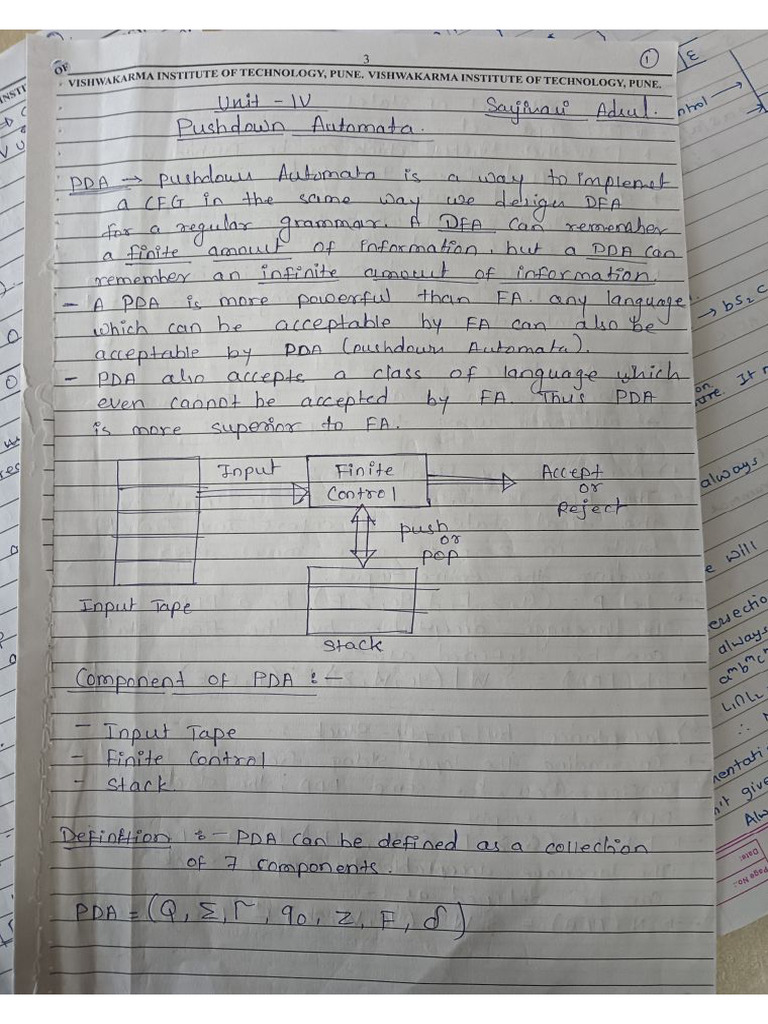 3
①
OF
VISHWAKARMA INSTITUTE OF TECHNOLOGY, PUNE. VISHWAKARMA INSTITUTE OF TECHNOLOGY, PUNE.
Unit - IV
Pushdown Automata.
PDA → Pushdown Automata is a way to implemet
a CFG in the same way we design DFA
for a regular grammar. A DFA can remember
a finite amount of information, but a PDA can
remember an infinite amount of information.
- A PDA is more powerful than FA. any language
which can be acceptable by FA can also be
acceptable by PDA (pushdown Automata).
- PDA also accepts a class of language which
even cannot be accepted by FA. Thus PDA
is more superior to FA.
Input
Finite
Control
Accept
or
Reject
push
or
pop
Input Tape
Stack
Component of PDA :-
- Input Tape
- Finite Control
- Stack
Definition :- PDA can be defined as a collection
of 7 components.
PDA = (Q, Σ, Γ, q0, Z, F, δ)
ntrol →
→ bS₂C
on
It
always
e will
always
aᵐbᵐcᵐ
L₁∩L₂
∴
Date:
Page No.: